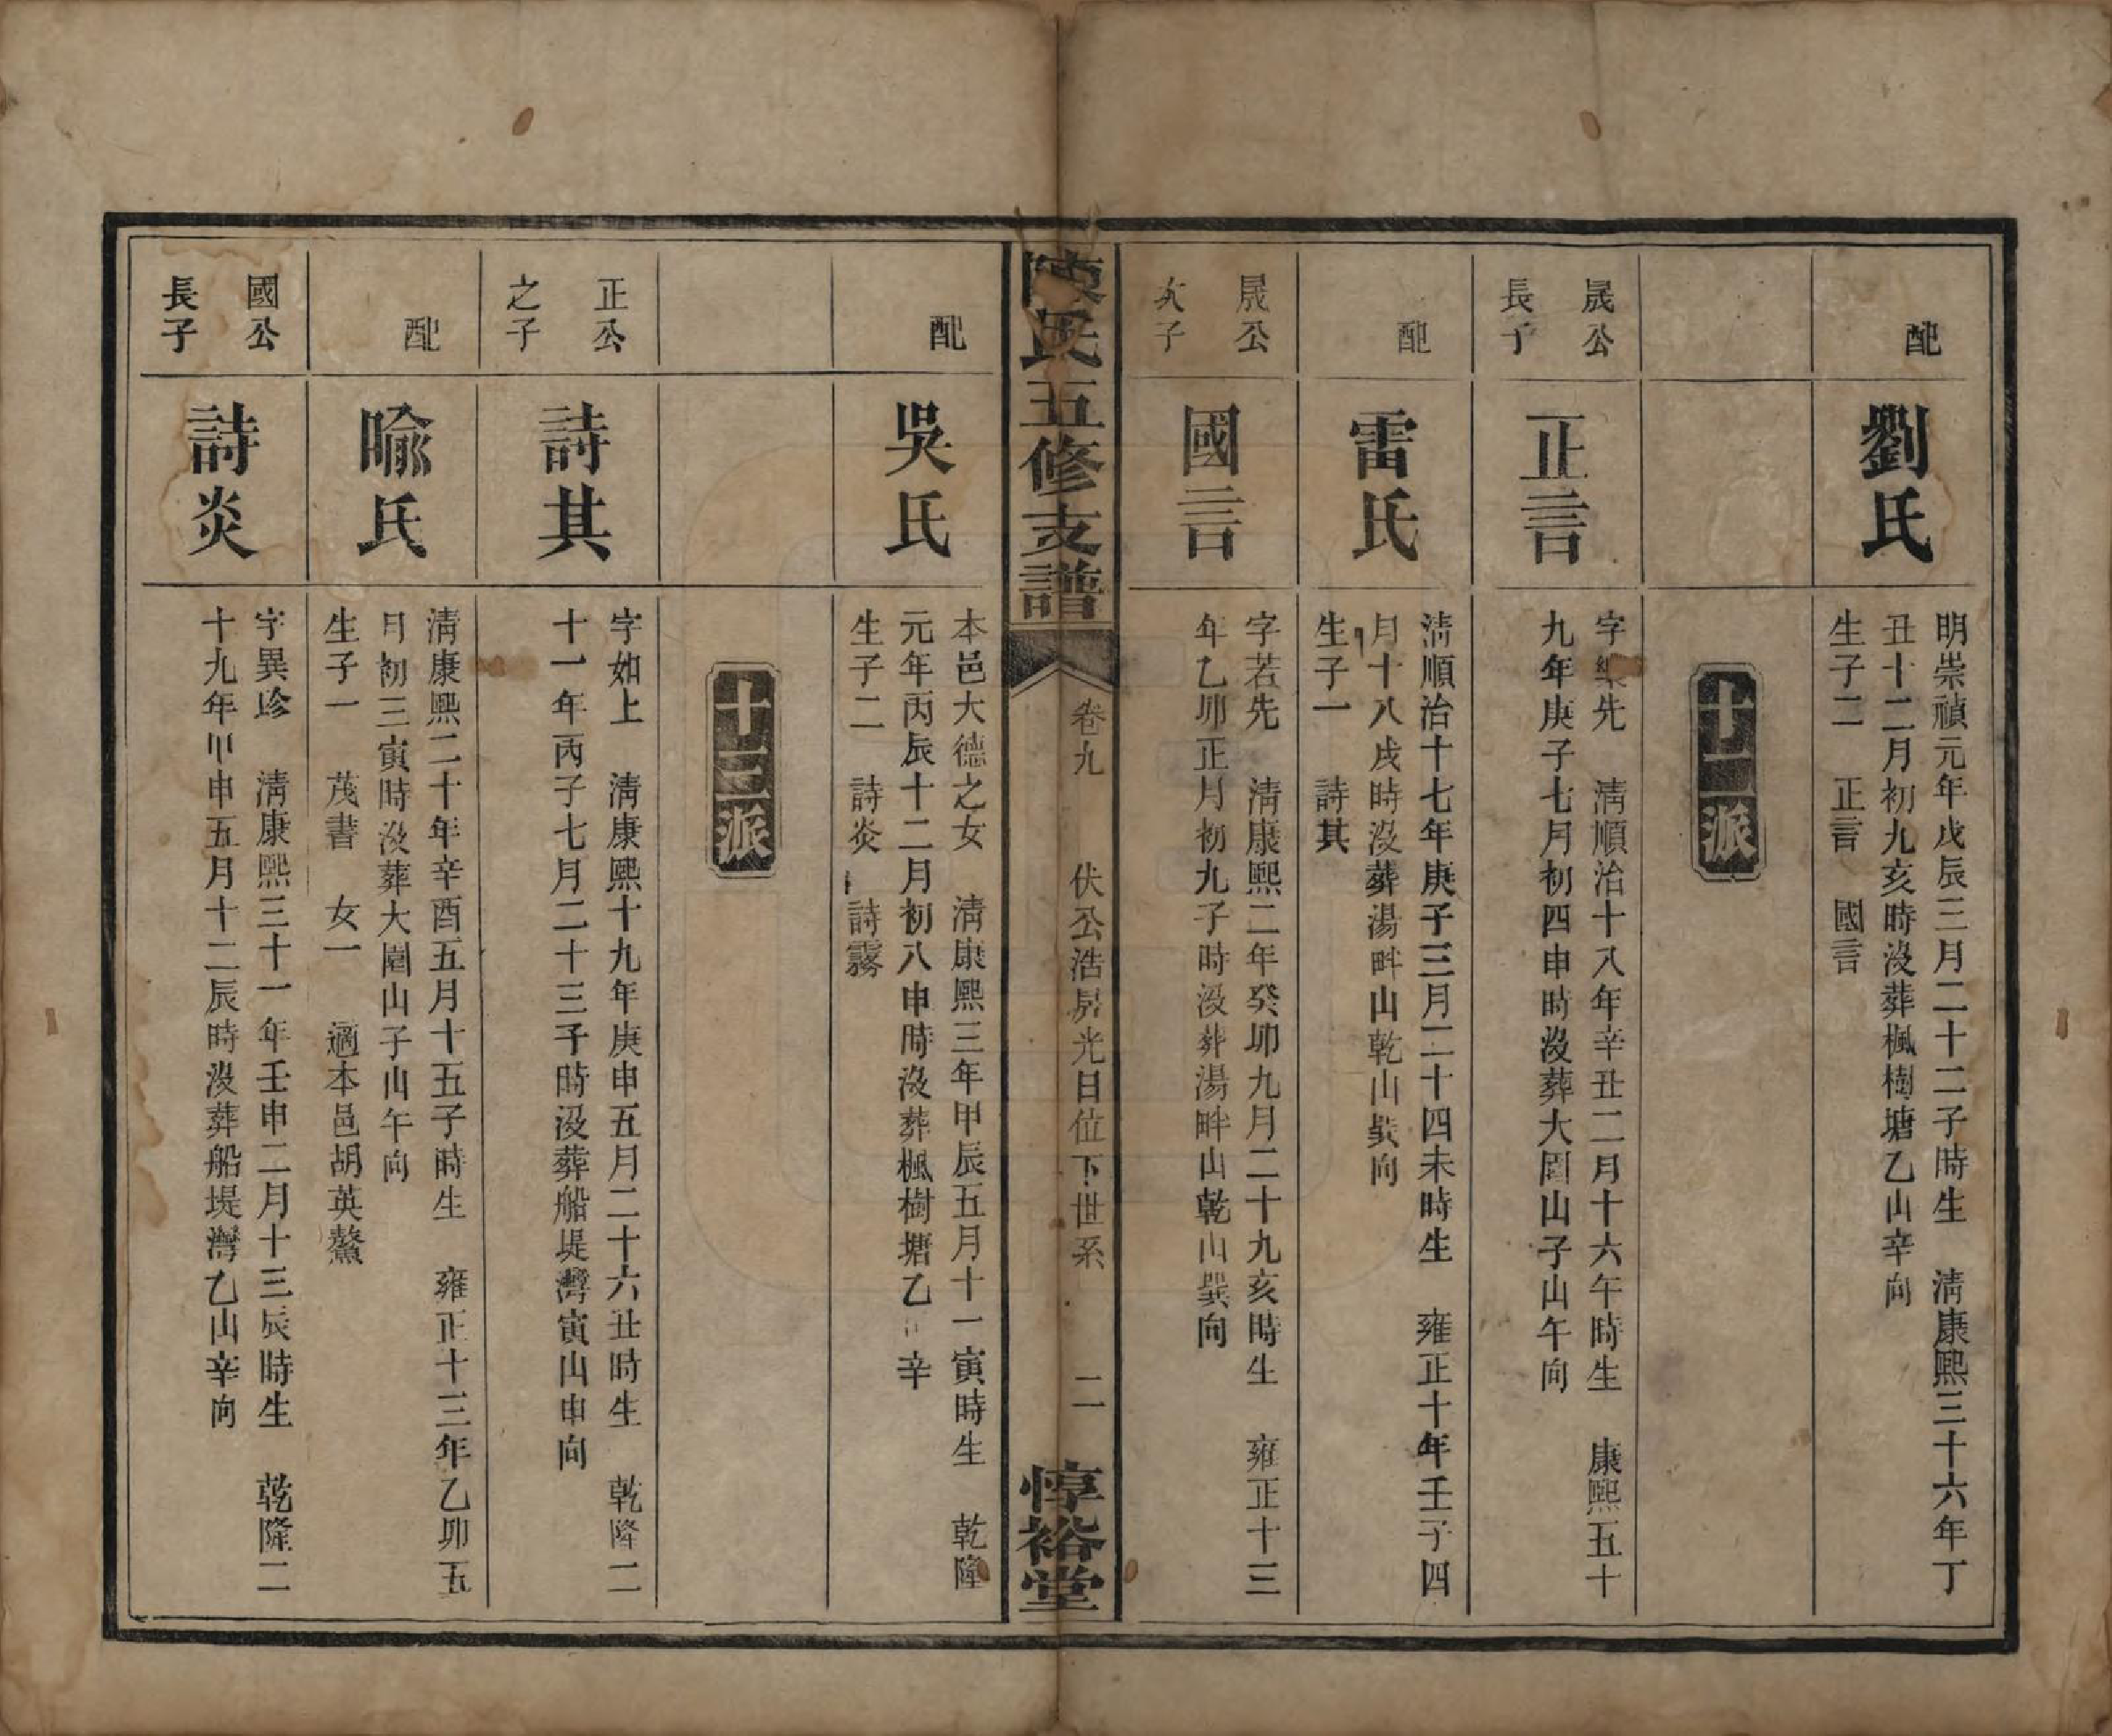 配
劉氏
明崇禎元年戊辰三月二十二子時生　清康熙三十六年丁
丑十二月初九亥時沒葬楓樹塘乙山辛向
生子二　正言　國言
十二派
晟公
長子
正言
字樂先　清順治十八年辛丑二月十六午時生　康熙五十
九年庚子七月初四申時沒葬大圍山子山午向
配
雷氏
清順治十七年庚子三月二十四未時生　雍正十年壬子四
月十八戌時沒葬湯畔山乾山巽向
生子一　詩其
晟公
次子
國言
字若先　清康熙二年癸卯九月二十九亥時生　雍正十三
年乙卯正月初九子時沒葬湯畔山乾山巽向
陳氏五修支譜
卷九
伏公浩昜光日位下世系
二
惇裕堂
配
吳氏
本邑大德之女　清康熙三年甲辰五月十一寅時生　乾隆
元年丙辰十二月初八申時沒葬楓樹塘乙山辛
生子二　詩炎　詩霧
十三派
正公
之子
詩其
字如上　清康熙十九年庚申五月二十六丑時生　乾隆二
十一年丙子七月二十三子時沒葬船堤灣寅山申向
配
喻氏
清康熙二十年辛酉五月十五子時生　雍正十三年乙卯五
月初三寅時沒葬大圍山子山午向
生子一　茂書　女一　適本邑胡英鰲
國公
長子
詩炎
字異珍　清康熙三十一年壬申二月十三辰時生　乾隆二
十九年甲申五月十二辰時沒葬船堤灣乙山辛向